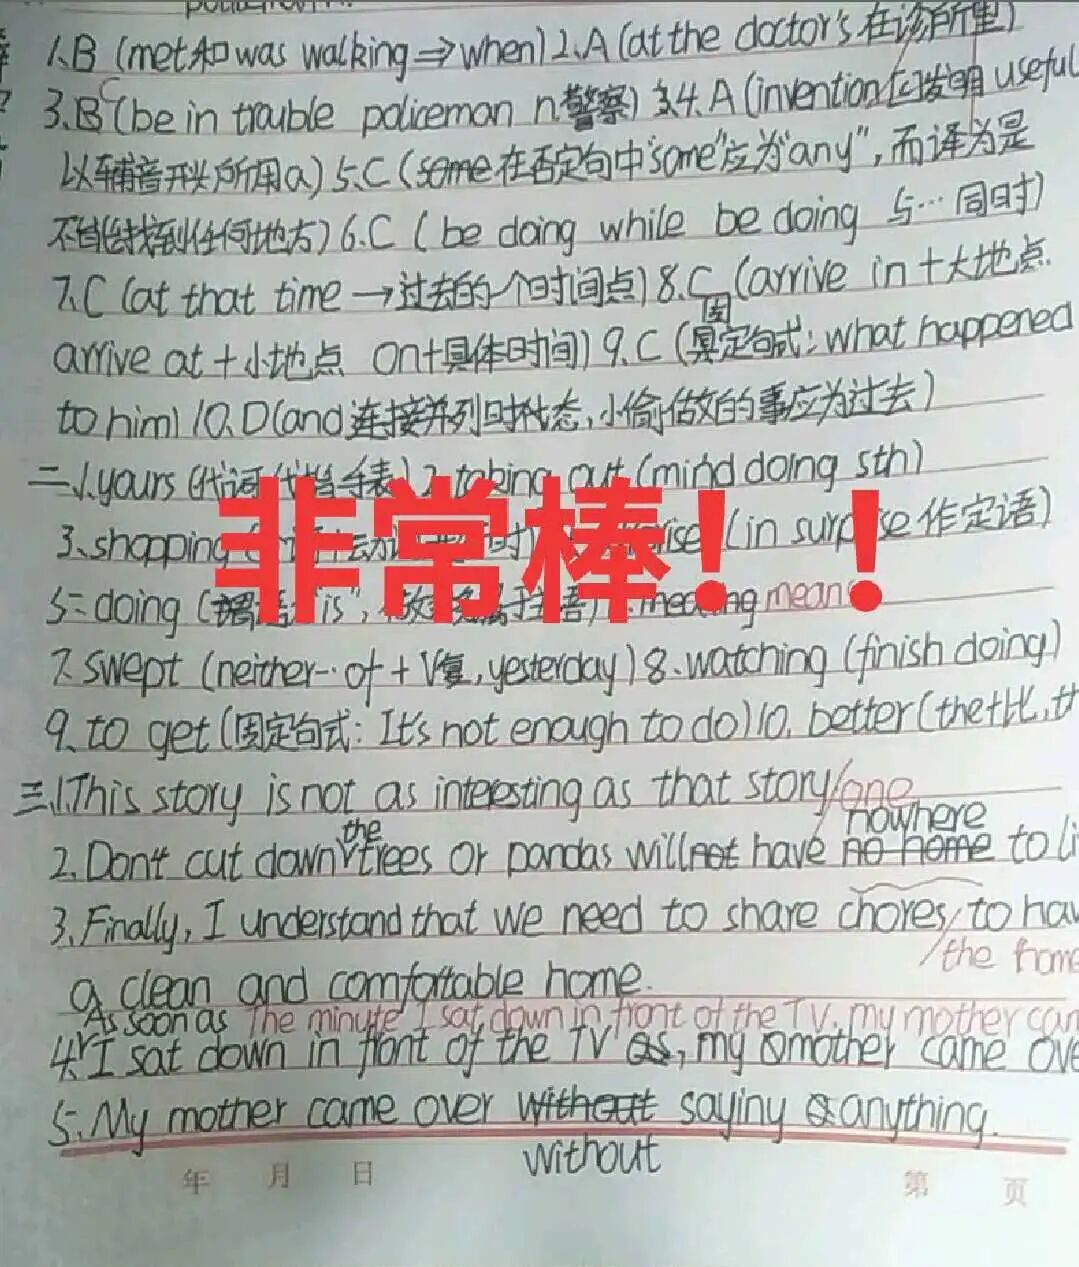 1.B (met和was walking⇒when) 2.A (at the doctor's 在诊所里)
3.B C (be in trouble policeman n.警察) 4.A (invention 发明 useful
以辅音开头所用a) 5.C (some在否定句中"some"应为"any",而译为是
不能找到任何地方) 6.C ( be doing while be doing 与…同时)
7.C (at that time →过去的一个时间点) 8.C (arrive in+大地点
arrive at+小地点 on+具体时间) 9.C (固定句式: what happened
to him) 10.D (and连接并列时状态,小偷做的事应为过去)
二、1.yours (代词代指手表) 2.taking out (mind doing sth)
3.shopping (in surprise 作定语)
非常棒!!
5.doing ("is", 主语) meaning mean
7.swept (neither… of + V复, yesterday) 8.watching (finish doing)
9.to get (固定句式: It's not enough to do) 10.better (the+比,
三、1.This story is not as interesting as that story/one
nowhere
2.Don't cut down the trees or pandas will not have no home to
3.Finally, I understand that we need to share chores, to
the
a clean and comfortable home.
As soon as The minute I sat down in front of the TV, my mother
4.I sat down in front of the TV as, my mother came
5.My mother came over without saying anything.
without
年 月 日 第 页